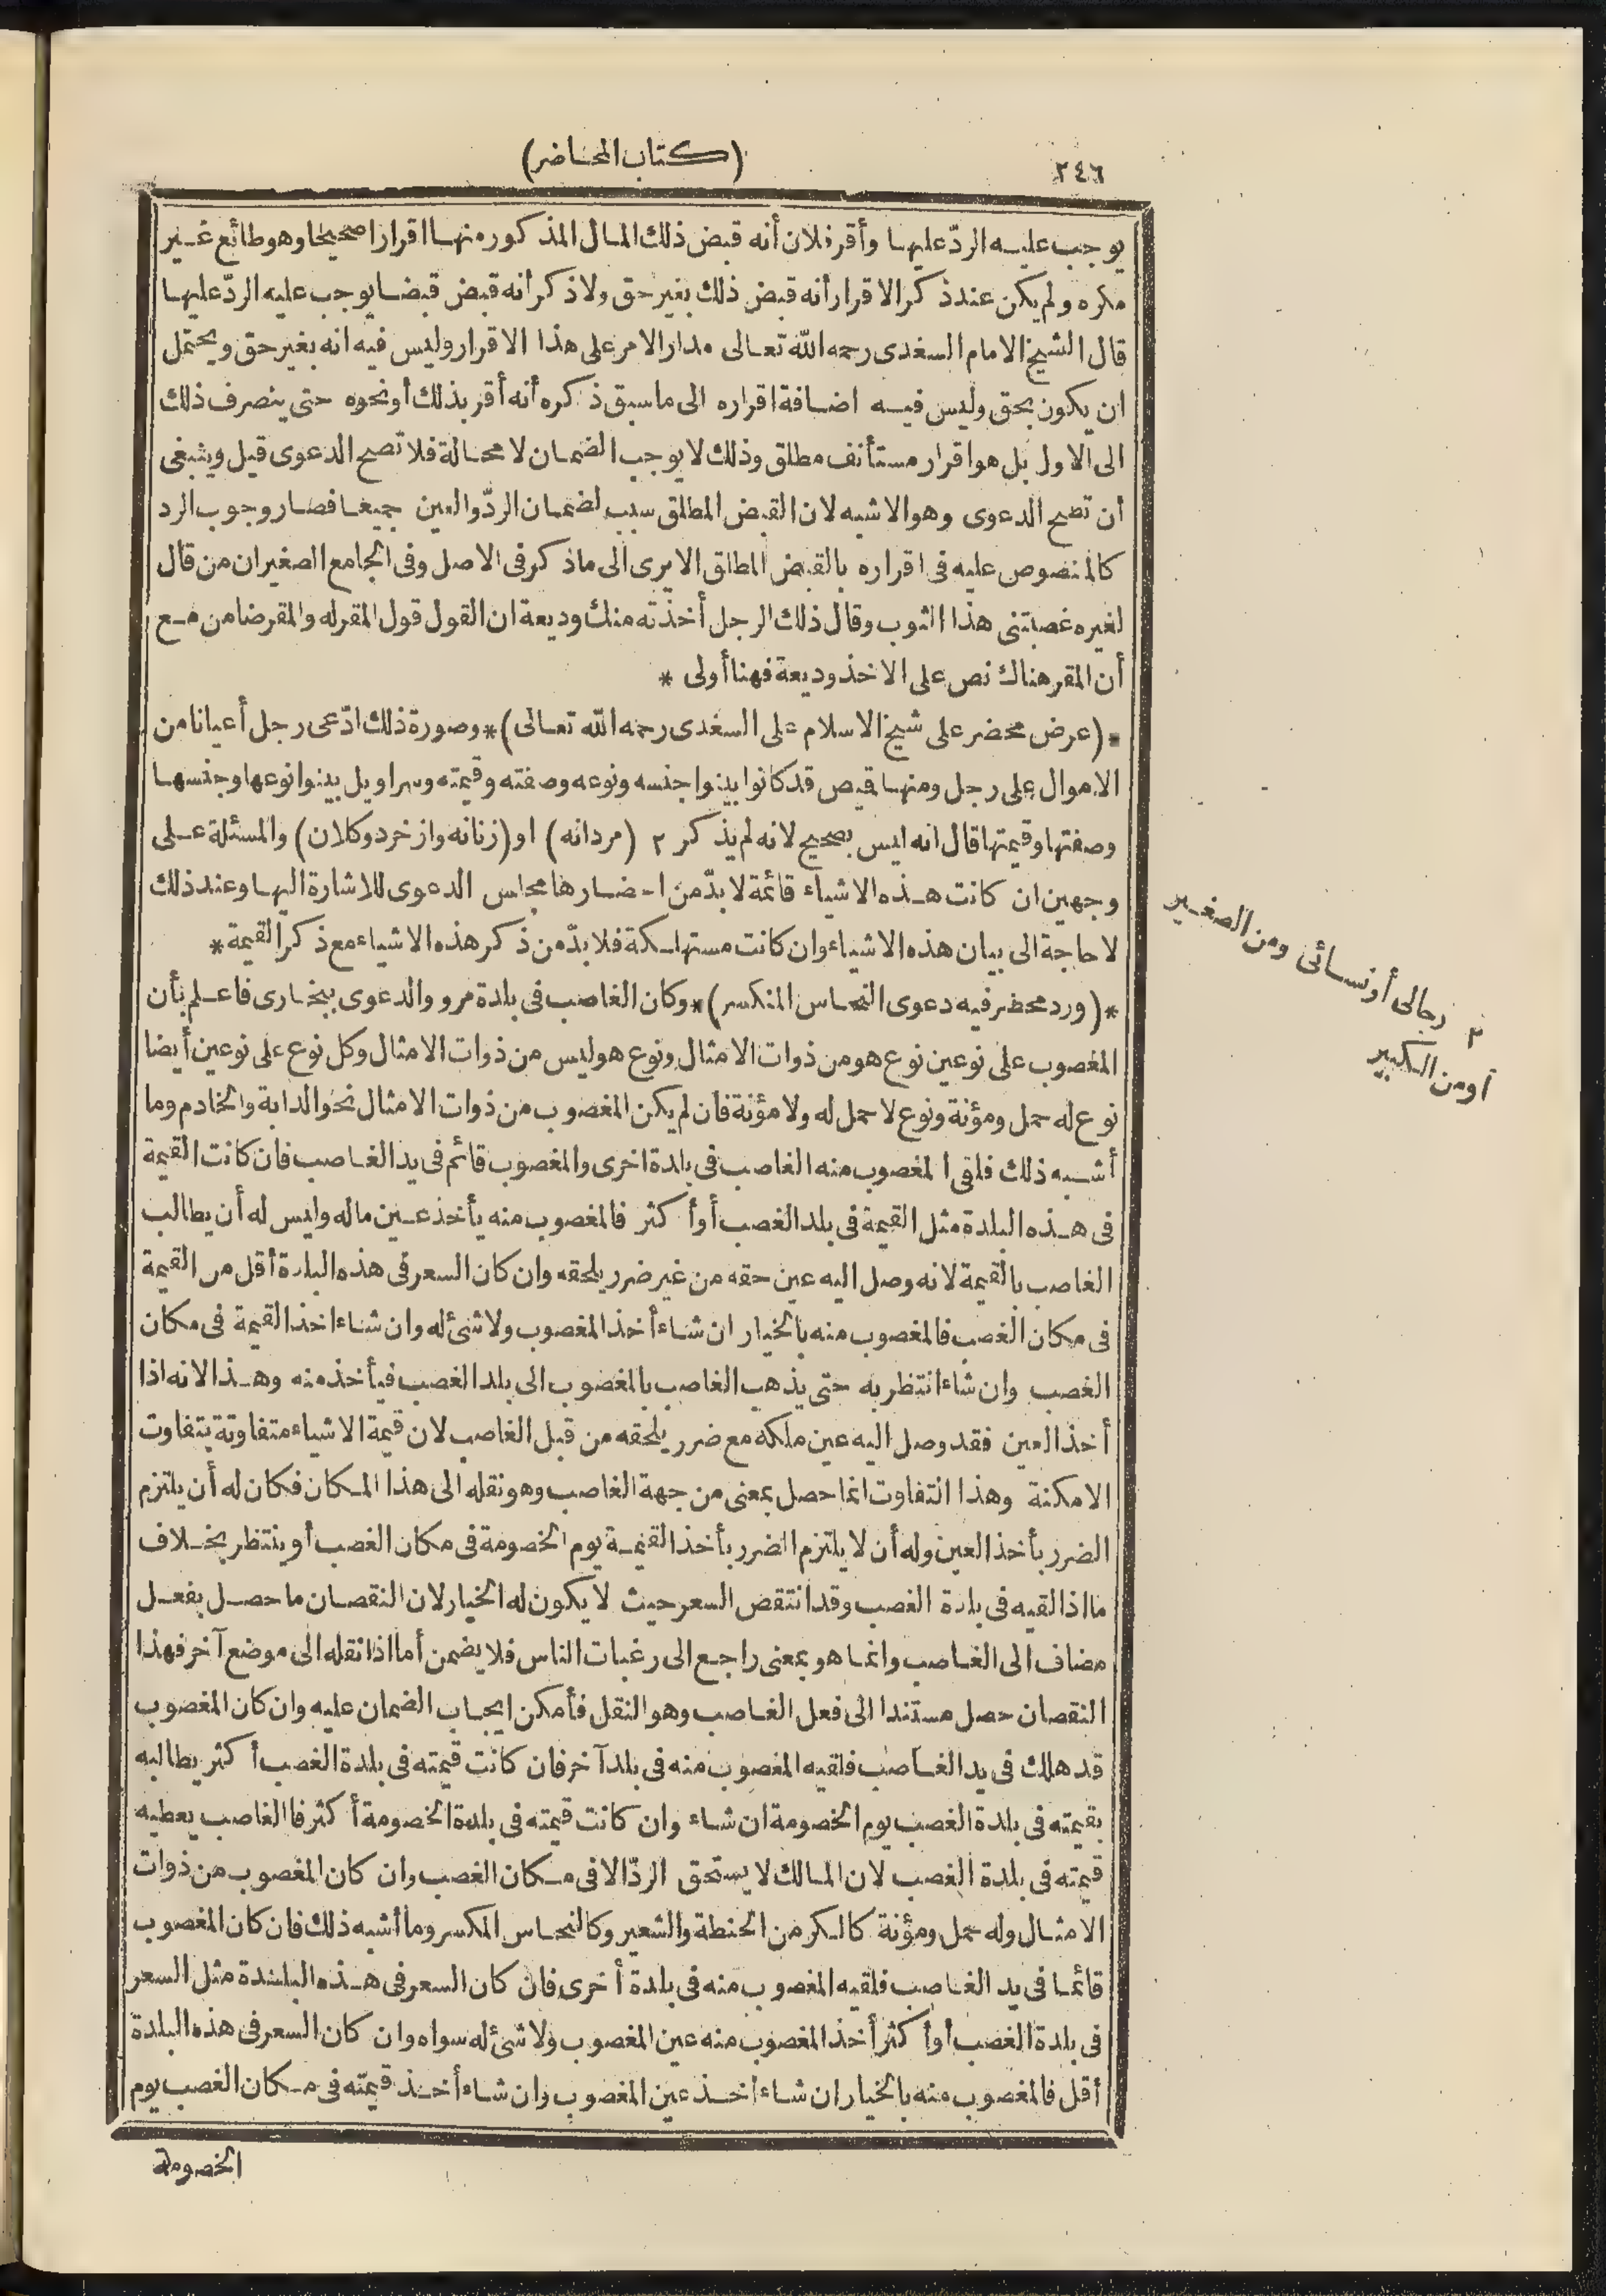 ٢٤٦
(كتاب المحاضر)
يوجب عليه الردّ عليها وأقر فلان أنه قبض ذلك المال المذكور منها اقرارا صحيحا وهو طائع غير
مكره ولم يكن عند ذكر الاقرار أنه قبض ذلك بغير حق ولا ذكر أنه قبض قبضا يوجب عليه الردّ عليها
قال الشيخ الامام السغدى رحمه الله تعالى مدار الامر على هذا الاقرار وليس فيه انه بغير حق ويحتمل
ان يكون بحق وليس فيه اضافة اقراره الى ما سبق ذكره أنه أقر بذلك أو نحوه حتى ينصرف ذلك
الى الاول بل هو اقرار مستأنف مطلق وذلك لا يوجب الضمان لا محالة فلا تصح الدعوى قيل وينبغى
أن تصح الدعوى وهو الاشبه لان القبض المطلق سبب لضمان الردّ والعين جميعا فصار وجوب الرد
كالمنصوص عليه فى اقراره بالقبض المطلق الا يرى الى ما ذكر فى الاصل وفى الجامع الصغير ان من قال
لغيره غصبتنى هذا الثوب وقال ذلك الرجل أخذته منك وديعة ان القول قول المقر له والمقر ضامن مع
أن المقر هناك نص على الاخذ وديعة فهنا أولى *
*(عرض محضر على شيخ الاسلام على السغدى رحمه الله تعالى)* وصورة ذلك ادّعى رجل أعيانا من
الاموال على رجل ومنها قميص قد كانوا بينوا جنسه ونوعه وصفته وقيمته وسراويل بينوا نوعها وجنسها
وصفتها وقيمتها قال انه ليس بصحيح لانه لم يذكر ٢ (مردانه) او (زنانه واز خرد وكلان) والمسئلة على
وجهين ان كانت هذه الاشياء قائمة لا بدّ من احضارها مجلس الدعوى للاشارة اليها وعند ذلك
لا حاجة الى بيان هذه الاشياء وان كانت مستهلكة فلا بدّ من ذكر هذه الاشياء مع ذكر القيمة *
*(ورد محضر فيه دعوى النحاس المنكسر)* وكان الغاصب فى بلدة مرو والدعوى ببخارى فاعلم بأن
المغصوب على نوعين نوع هو من ذوات الامثال ونوع هو ليس من ذوات الامثال وكل نوع على نوعين أيضا
نوع له حمل ومؤنة ونوع لا حمل له ولا مؤنة فان لم يكن المغصوب من ذوات الامثال نحو الدابة والخادم وما
أشبه ذلك فلقى المغصوب منه الغاصب فى بلدة اخرى والمغصوب قائم فى يد الغاصب فان كانت القيمة
فى هذه البلدة مثل القيمة فى بلد الغصب أو أكثر فالمغصوب منه يأخذ عين ماله وليس له أن يطالب
الغاصب بالقيمة لانه وصل اليه عين حقه من غير ضرر يلحقه وان كان السعر فى هذه البلدة أقل من القيمة
فى مكان الغصب فالمغصوب منه بالخيار ان شاء أخذ المغصوب ولا شئ له وان شاء اخذ القيمة فى مكان
الغصب وان شاء انتظر به حتى يذهب الغاصب بالمغصوب الى بلد الغصب فيأخذه منه وهذا لانه اذا
أخذ العين فقد وصل اليه عين ملكه مع ضرر يلحقه من قبل الغاصب لان قيمة الاشياء متفاوتة بتفاوت
الامكنة وهذا التفاوت انما حصل بمعنى من جهة الغاصب وهو نقله الى هذا المكان فكان له أن يلتزم
الضرر بأخذ العين وله أن لا يلتزم الضرر بأخذ القيمة يوم الخصومة فى مكان الغصب أو ينتظر بخلاف
ما اذا لقيه فى بلدة الغصب وقد انتقص السعر حيث لا يكون له الخيار لان النقصان ما حصل بفعل
مضاف الى الغاصب وانما هو بمعنى راجع الى رغبات الناس فلا يضمن أما اذا نقله الى موضع آخر فهذا
النقصان حصل مستندا الى فعل الغاصب وهو النقل فأمكن ايجاب الضمان عليه وان كان المغصوب
قد هلك فى يد الغاصب فلقيه المغصوب منه فى بلد آخر فان كانت قيمته فى بلدة الغصب أكثر يطالبه
بقيمته فى بلدة الغصب يوم الخصومة ان شاء وان كانت قيمته فى بلدة الخصومة أكثر فالغاصب يعطيه
قيمته فى بلدة الغصب لان المالك لا يستحق الردّ الا فى مكان الغصب وان كان المغصوب من ذوات
الامثال وله حمل ومؤنة كالكر من الحنطة والشعير وكالنحاس المكسر وما أشبه ذلك فان كان المغصوب
قائما فى يد الغاصب فلقيه المغصوب منه فى بلدة أخرى فان كان السعر فى هذه البلدة مثل السعر
فى بلدة الغصب أو أكثر أخذ المغصوب منه عين المغصوب ولا شئ له سواه وان كان السعر فى هذه البلدة
أقل فالمغصوب منه بالخيار ان شاء أخذ عين المغصوب وان شاء أخذ قيمته فى مكان الغصب يوم
الخصومة
٢ رجالى أو نسائى ومن الصغير
أو من الكبير